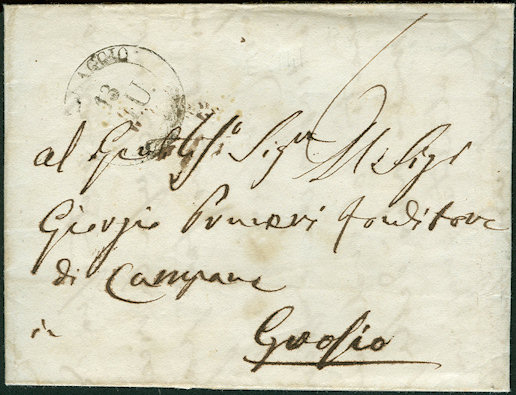 AGGIO
13
6
al Sig.r
Giorgio Pruneri fonditore
di Campane
in Grosio